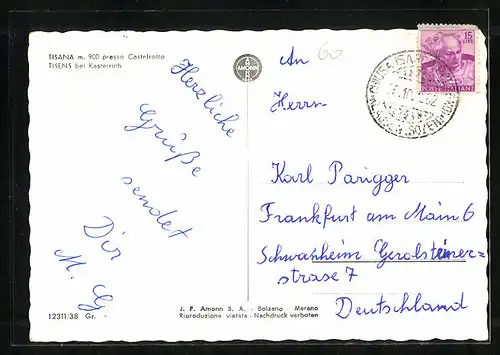 TISANA m. 900 presso Castelrotto
TISENS bei Kastelruth
Herzliche
Grüße
sendet
Dir
M. G.
12311/38 Gr.
AMONN
J. F. Amonn S. A. - Bolzano - Merano
Riproduzione vietata - Nachdruck verboten
An
60
Herrn
Karl Parigger
Frankfurt am Main 6
Schwanheim Gerolsteiner-
strase 7
Deutschland
15
LIRE
POSTE ITALIANE